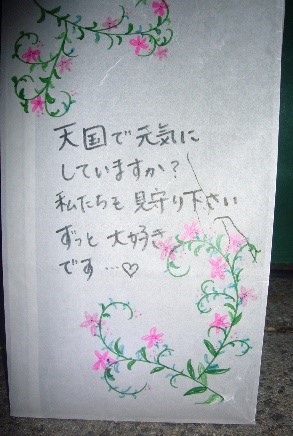 天国で元気に
していますか?
私たちも見守り下さい
ずっと大好き
です…♡